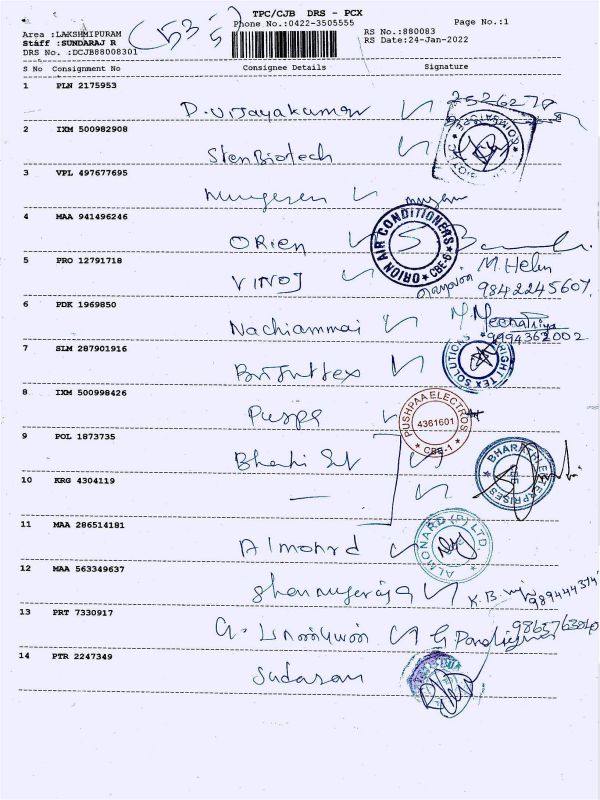 TPC/CJB DRS - PCX
Phone No.:0422-3505555
Page No.:1
Area :LAKSHMIPURAM
Staff :SUNDARAJ R
DRS No. :DCJB88008301
RS No.:880083
RS Date:24-Jan-2022
S No Consignment No Consignee Details Signature
1 PLN 2175953
D. Vijayakumar
2 IXM 500982908
Sten Biotech
3 VPL 497677695
Murugesen
4 MAA 941496246
Orien
ORION AIR CONDITIONERS
CBE-6
5 PRO 12791718
VINOJ
M. Helen
9842245607.
6 PDK 1969850
Nachiammai
9994362002
7 SLM 287901916
BRIGHT TEX SOLUTIONS
8 IXM 500998426
Puspa
PUSHPAA ELECTROS
4361601
CBE-1
9 POL 1873735
BHARATHI ENTERPRISES
10 KRG 4304119
11 MAA 286514181
Almonrd
ALMONARD (P) LTD.
12 MAA 563349637
Shanmugaraja
K.B.
13 PRT 7330917
14 PTR 2247349
Sudasan